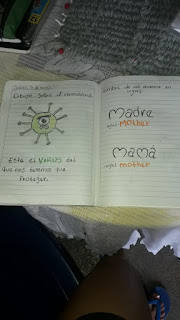 Dibujo sobre el coronavirus
Este es VIRUS del
que nos tenemos que
proteger.
Nombre de
en
ingles
Madre
ingles MOTHER
Mamá
ingles mother